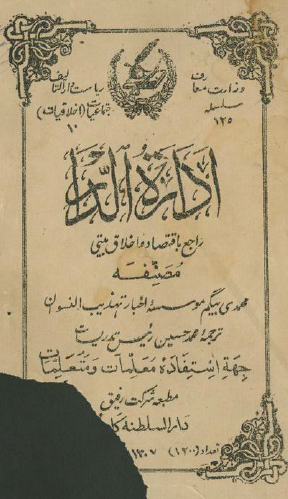 وزارت معارف
ریاست دارالتالیف
سلسله
۱۲۵
اجتماعیات (اخلاقیات)
۱۰
ادارة الدار
راجع باقتصاد و اخلاق بیتی
مصنفه
محمدی بیگم موسسهٔ اخبار تهذیب النسوان
ترجمهٔ احمد حسین رئیس تدریسات
جهة استفادهٔ معلمات و متعلمات
مطبعه شرکت رفیق
دار السلطنه
تعداد (۱۲۰۰)
۱۳۰۷